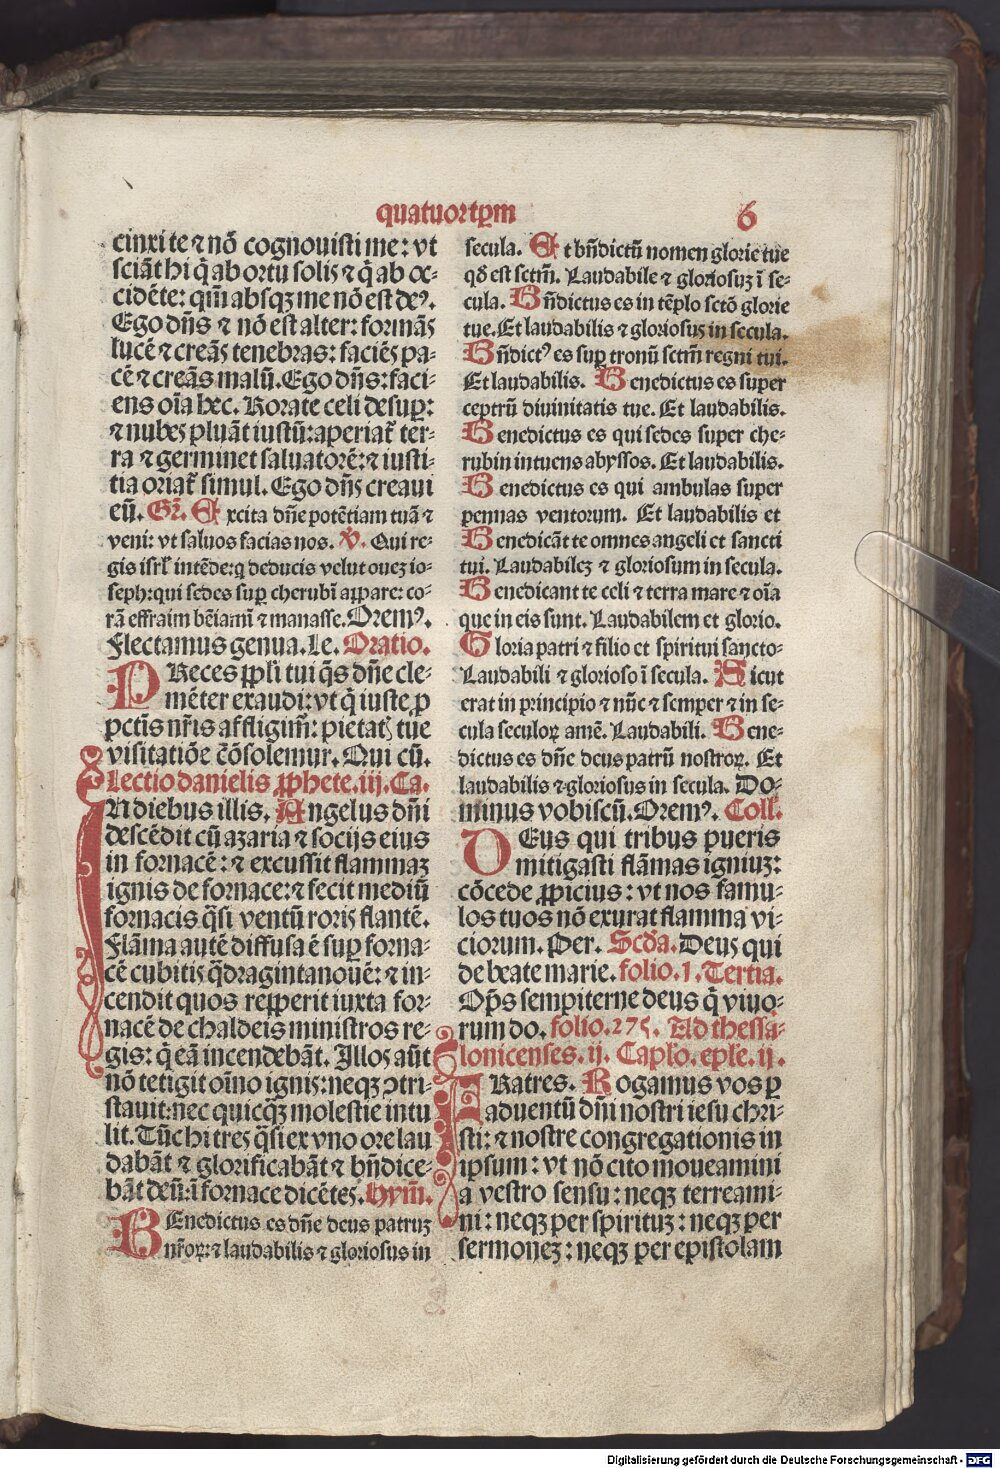 quatuortp̄m
6
cinxi te ⁊ nō cognouisti me: vt
sciāt hi q̄ ab ortu solis ⁊ q̄ ab oc⸗
cidēte: qm̄ absqꝫ me nō est deꝰ.
Ego dn̄s ⁊ nō est alter: formās
lucē ⁊ creās tenebras: faciēs pa⸗
cē ⁊ creās malū. Ego dn̄s: faci⸗
ens oīa hec. Rorate celi desuꝑ:
⁊ nubes pluāt iustū: aperiat̄ ter⸗
ra ⁊ germinet saluatorē: ⁊ iusti⸗
tia oriat̄ simul. Ego dn̄s creaui
eū. Gr̄. Excita dn̄e potētiam tuā ⁊
veni: vt saluos facias nos. v̄. Qui re⸗
gis isrl̄ intēde: q̄ deducis velut ouez io⸗
seph: qui sedes suꝑ cherubī appare: co⸗
rā effraim bēiamī ⁊ manasse. Oremꝰ.
Flectamus genua. Le. Oratio.
PReces ppl̄i tui q̄s dn̄e cle⸗
mēter exaudi: vt q̄ iuste ꝓ
pctīs nr̄is affligim̄: pietatꝭ tue
visitatiōe cōsolemur. Qui cū.
Lectio danielis ꝓphete. iij. Ca.
IN diebus illis. Angelus dn̄i
descēdit cū azaria ⁊ socijs eius
in fornacē: ⁊ excussit flammaꝫ
ignis de fornace: ⁊ fecit mediū
fornacis q̄si ventū roris flantē.
Flāma autē diffusa ē suꝑ forna⸗
cē cubitis q̄dragintanouē: ⁊ in⸗
cendit quos repperit iuxta for⸗
nacē de chaldeis ministros re⸗
gis: q̄ eā incendebāt. Illos aūt
nō tetigit oīno ignis: neqꝫ ↄtri⸗
stauit: nec quicq̄ꝫ molestie intu
lit. Tūc hi tres q̄si ex vno ore lau
dabāt ⁊ glorificabāt ⁊ bn̄dice⸗
bāt deū: ī fornace dicētes. Hym̄.
BEnedictus es dn̄e deus patruꝫ
nr̄oꝝ: ⁊ laudabilis ⁊ gloriosus in
secula. Et bn̄dictū nomen glorie tue
qd̄ est sctm̄. Laudabile ⁊ gloriosuꝫ ī se⸗
cula. Bn̄dictus es in tēplo sctō glorie
tue. Et laudabilis ⁊ gloriosus in secula.
Bn̄dictꝰ es suꝑ tronū sctm̄ regni tui.
Et laudabilis. Benedictus es super
ceptrū diuinitatis tue. Et laudabilis.
Benedictus es qui sedes super che⸗
rubin intuens abyssos. Et laudabilis.
Benedictus es qui ambulas super
pennas ventorum. Et laudabilis et
Benedicāt te omnes angeli et sancti
tui. Laudabilez ⁊ gloriosum in secula.
Benedicant te celi ⁊ terra mare ⁊ oīa
que in eis sunt. Laudabilem et glorio.
Gloria patri ⁊ filio et spiritui sancto⸗
Laudabili ⁊ glorioso ī secula. Sicut
erat in principio ⁊ nūc ⁊ semper ⁊ in se⸗
cula seculoꝝ amē. Laudabili. Bene⸗
dictus es dn̄e deus patrū nostroꝝ. Et
laudabilis ⁊ gloriosus in secula. Do⸗
minus vobiscū. Oremꝰ. Coll̄.
DEus qui tribus pueris
mitigasti flāmas igniuꝫ:
cōcede ꝓpicius: vt nos famu⸗
los tuos nō exurat flamma vi⸗
ciorum. Per. Scd̄a. Deus qui
de beate marie. folio. 1. Tertia.
Op̄s sempiterne deus q̄ viuo⸗
rum do. folio. 275. Ad thessa⸗
lonicenses. ij. Caplo. epl̄e. ij.
FRatres. Rogamus vos ꝑ
aduentū dn̄i nostri iesu chri⸗
sti: ⁊ nostre congregationis in
ipsum: vt nō cito moueamini
a vestro sensu: neqꝫ terreami⸗
ni: neqꝫ per spirituꝫ: neqꝫ per
sermoneꝫ: neqꝫ per epistolam
Digitalisierung gefördert durch die Deutsche Forschungsgemeinschaft - DFG